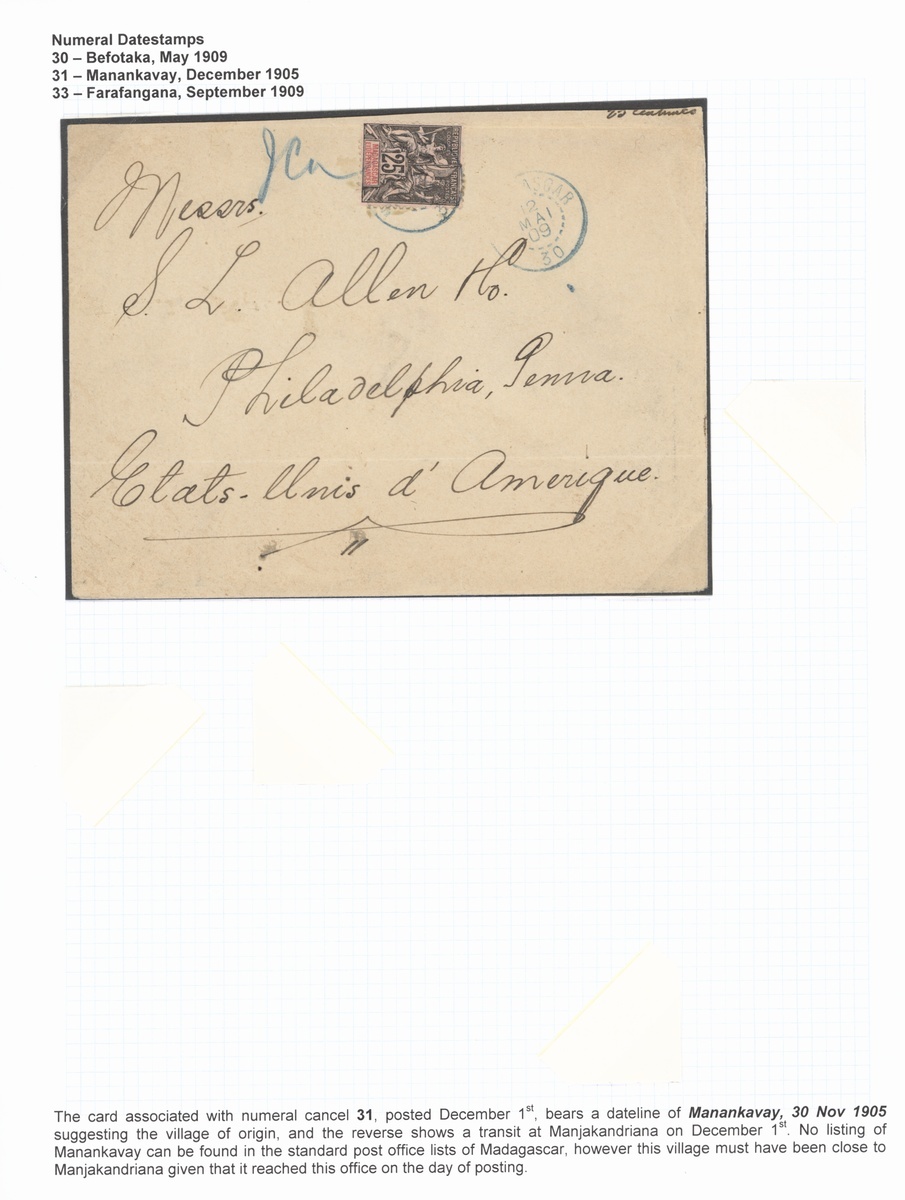 Numeral Datestamps
30 – Befotaka, May 1909
31 – Manankavay, December 1905
33 – Farafangana, September 1909
25 centimes
Messrs.
25
REPUBLIQUE FRANÇAISE
MAI
09
30
S. L. Allen
Philadelphia, Penna.
Etats-Unis d' Amerique.
The card associated with numeral cancel 31, posted December 1st, bears a dateline of Manankavay, 30 Nov 1905
suggesting the village of origin, and the reverse shows a transit at Manjakandriana on December 1st. No listing of
Manankavay can be found in the standard post office lists of Madagascar, however this village must have been close to
Manjakandriana given that it reached this office on the day of posting.